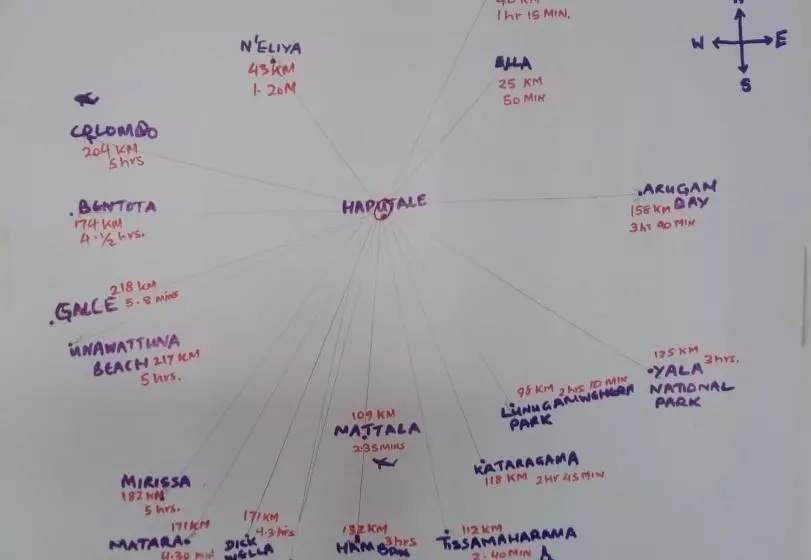 1 hr 15 MIN.
W E
S
N'ELIYA
43 KM
1.20M
ELLA
25 KM
50 MIN
COLOMBO
204 KM
5 hrs
HAPUTALE
ARUGAN
BAY
158 KM
3 hr 40 MIN
BENTOTA
174 KM
4.½ hrs.
218 KM
GALLE 5.8 mins
UNAWATTUNA
BEACH 217 KM
5 hrs.
125 KM
3 hrs.
YALA
NATIONAL
PARK
98 KM 2 hrs 10 MIN
LUNUGAMWEHERA
PARK
109 KM
MATTALA
2.35 MINS
KATARAGAMA
118 KM 2 Hr 45 MIN
MIRISSA
182 KM
5 hrs.
171 KM
MATARA
4.30 min
171 KM
4.3 hrs
DICK
WELLA
132 KM
3 hrs
112 KM
TISSAMAHARAMA
2.40 MIN